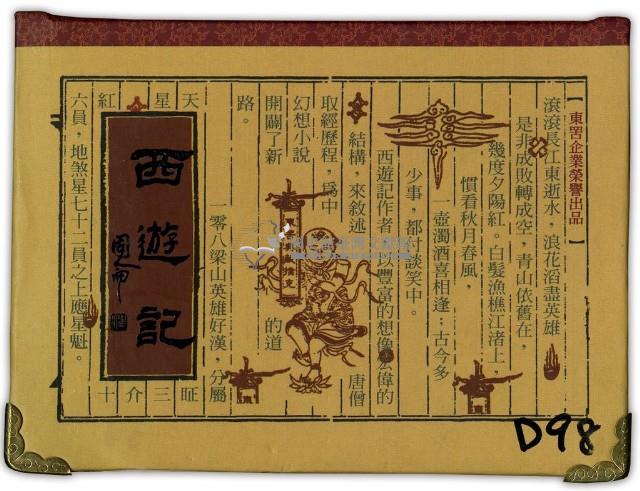 【東罡企業榮譽出品】
滾滾長江東逝水，浪花滔盡英雄
是非成敗轉成空，青山依舊在，
幾度夕陽紅。白髮漁樵江渚上，
慣看秋月春風，
一壺濁酒喜相逢；古今多
少事，都付談笑中。
西遊記作者 豐富的想像 偉的
結構，來敘述 唐僧
取經歷程，為中
幻想小說 的道
開闢了新
路。
一零八梁山英雄好漢，分屬
天星紅
西遊記
十介三眐
六員，地煞星七十二員之上應星魁。
東
東
東
D98